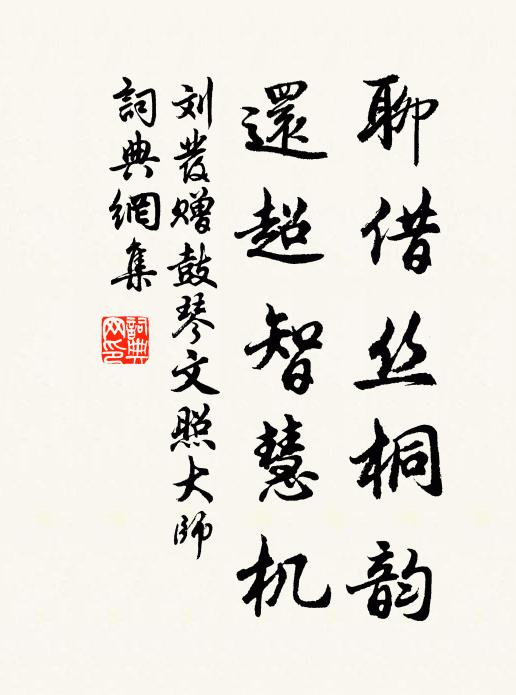 聊借丝桐韵
還超智慧机
刘發赠鼓琴文照大师
詞典網集
詞典网印